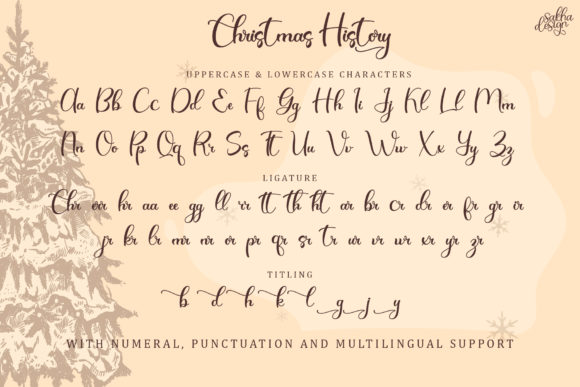 Christmas History
sakha
design
UPPERCASE & LOWERCASE CHARACTERS
Aa Bb Cc Dd Ee Ff Gg Hh Ii Jj Kk Ll Mm
Nn Oo Pp Qq Rr Ss Tt Uu Vv Ww Xx Yy Zz
LIGATURE
Chr er hr aa ee gg ll rr tt th ht ar br cr dr er fr gr ir
jr kr lr mr nr or pr qr sr tr ur vr wr xr yr zr
TITLING
b d h k l g j y
WITH NUMERAL, PUNCTUATION AND MULTILINGUAL SUPPORT